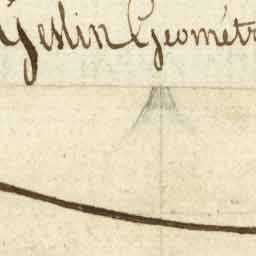 Geslin Géomètr